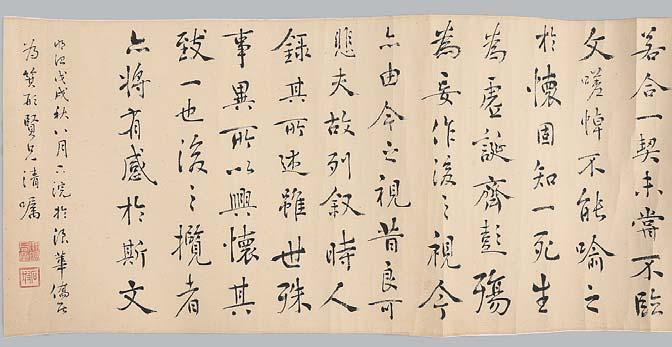 若合一契未嘗不臨
文嗟悼不能喻之
於懷固知一死生
為虛誕齊彭殤
為妄作後之視今
亦由今之視昔良可
悲夫故列叙時人
録其所述雖世殊
事異所以興懷其
致一也後之攬者
亦将有感於斯文
明治戊戌秋八月下浣於浪華僑居
為賢兄清嘱